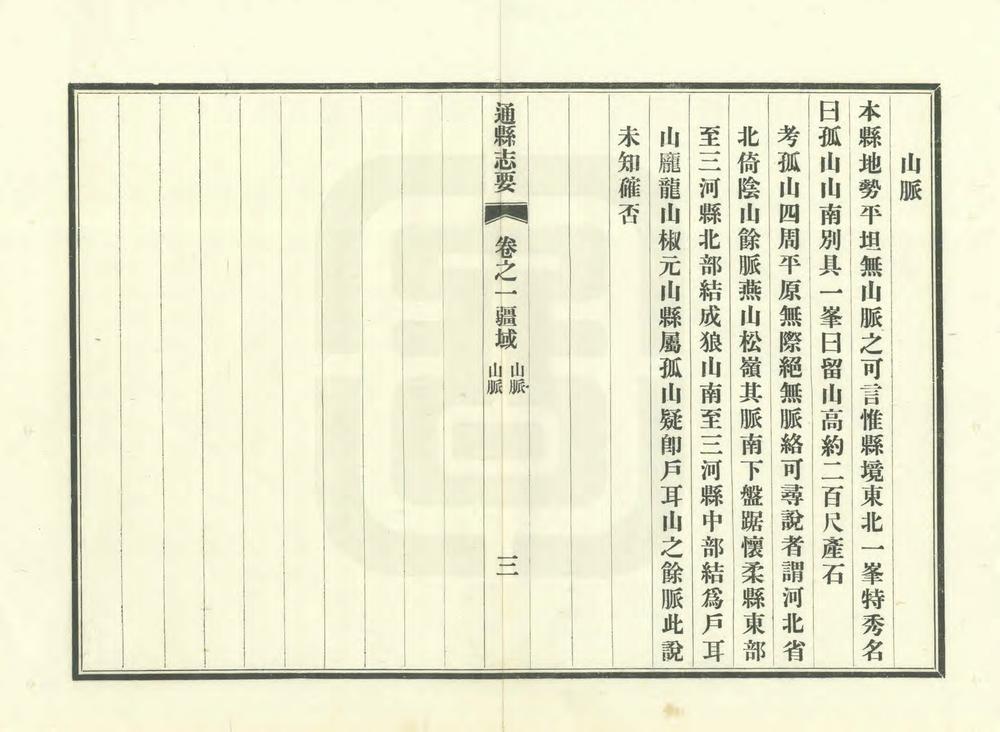 山脈
本縣地勢平坦無山脈之可言惟縣境東北一峯特秀名
曰孤山山南別具一峯曰留山高約二百尺產石
考孤山四周平原無際絕無脈絡可尋說者謂河北省
北倚陰山餘脈燕山松嶺其脈南下盤踞懷柔縣東部
至三河縣北部結成狼山南至三河縣中部結爲戶耳
山龐龍山椒元山縣屬孤山疑卽戶耳山之餘脈此說
未知確否
通縣志要
卷之一疆域
山脈
山脈
三